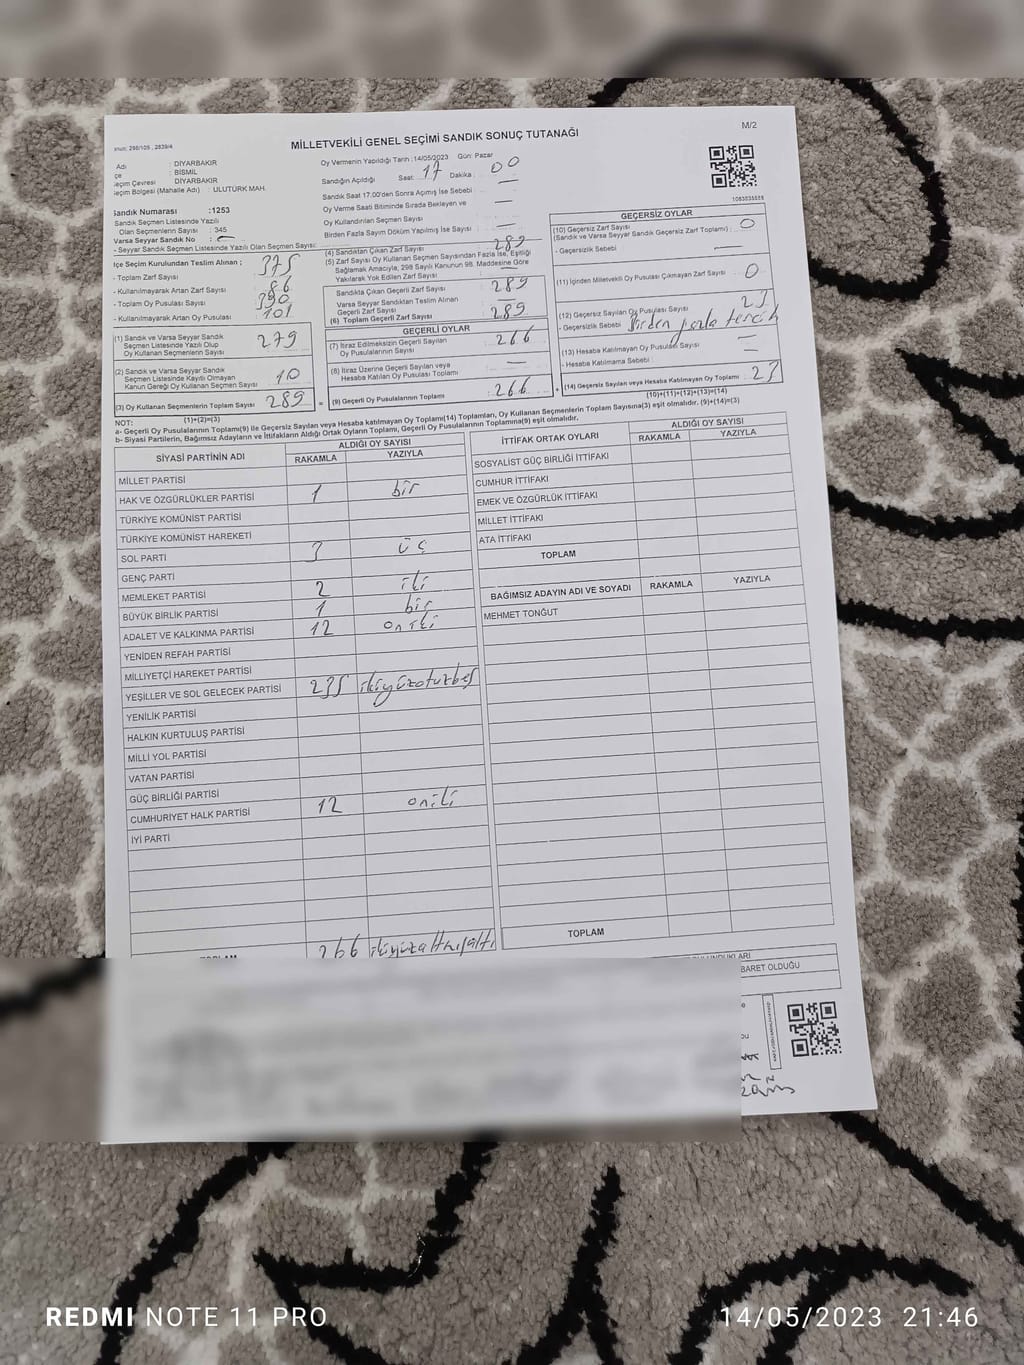 MİLLETVEKİLİ GENEL SEÇİMİ SANDIK SONUÇ TUTANAĞI
M/2
Adı : DİYARBAKIR
: BİSMİL
Seçim Çevresi : DİYARBAKIR
Seçim Bölgesi (Mahalle Adı) : ULUTÜRK MAH.
Sandık Numarası :1253
Sandık Seçmen Listesinde Yazılı
Olan Seçmenlerin Sayısı : 345
Varsa Seyyar Sandık No :
- Seyyar Sandık Seçmen Listesinde Yazılı Olan Seçmen Sayısı:
Oy Vermenin Yapıldığı Tarih :14/05/2023 Gün: Pazar
Sandığın Açıldığı Saat: 17 Dakika : 00
Sandık Saat 17.00'den Sonra Açılmış İse Sebebi :
Oy Verme Saati Bitiminde Sırada Bekleyen ve
Oy Kullandırılan Seçmen Sayısı
Birden Fazla Sayım Döküm Yapılmış İse Sayısı :
1083835555
İlçe Seçim Kurulundan Teslim Alınan ;
- Toplam Zarf Sayısı : 375
- Kullanılmayarak Artan Zarf Sayısı : 86
- Toplam Oy Pusulası Sayısı : 390
- Kullanılmayarak Artan Oy Pusulası : 101
(1) Sandık ve Varsa Seyyar Sandık
Seçmen Listesinde Yazılı Olup
Oy Kullanan Seçmenlerin Sayısı : 279
(2) Sandık ve Varsa Seyyar Sandık
Seçmen Listesinde Kayıtlı Olmayan
Kanun Gereği Oy Kullanan Seçmen Sayısı : 10
(3) Oy Kullanan Seçmenlerin Toplam Sayısı 289
(1)+(2)=(3)
(4) Sandıktan Çıkan Zarf Sayısı : 289
(5) Zarf Sayısı Oy Kullanan Seçmen Sayısından Fazla İse, Eşitliği
Sağlamak Amacıyla, 298 Sayılı Kanunun 98. Maddesine Göre
Yakılarak Yok Edilen Zarf Sayısı :
Sandıkta Çıkan Geçerli Zarf Sayısı : 289
Varsa Seyyar Sandıktan Teslim Alınan
Geçerli Zarf Sayısı
(6) Toplam Geçerli Zarf Sayısı : 289
GEÇERLİ OYLAR
(7) İtiraz Edilmeksizin Geçerli Sayılan
Oy Pusulalarının Sayısı : 266
(8) İtiraz Üzerine Geçerli Sayılan veya
Hesaba Katılan Oy Pusulası Toplamı :
(9) Geçerli Oy Pusulalarının Toplamı : 266
GEÇERSİZ OYLAR
(10) Geçersiz Zarf Sayısı
(Sandık ve Varsa Seyyar Sandık Geçersiz Zarf Toplamı) : 0
- Geçersiz Sebebi :
(11) İçinden Milletvekili Oy Pusulası Çıkmayan Zarf Sayısı : 0
(12) Geçersiz Sayılan Oy Pusulası Sayısı
- Geçersizlik Sebebi : Birden fazla tercih
(13) Hesaba Katılmayan Oy Pusulası Sayısı
- Hesaba Katılmama Sebebi :
(14) Geçersiz Sayılan veya Hesaba Katılmayan Oy Toplamı : 23
(10)+(11)+(12)+(13)=(14)
NOT:
a- Geçerli Oy Pusulalarının Toplamı(9) ile Geçersiz Sayılan veya Hesaba katılmayan Oy Toplamı(14) Toplamları, Oy Kullanan Seçmenlerin Toplam Sayısına(3) eşit olmalıdır. (9)+(14)=(3)
b- Siyasi Partilerin, Bağımsız Adayların ve İttifakların Aldığı Ortak Oyların Toplamı, Geçerli Oy Pusulalarının Toplamına(9) eşit olmalıdır.
SİYASİ PARTİNİN ADI ALDIĞI OY SAYISI
RAKAMLA YAZIYLA
MİLLET PARTİSİ
HAK VE ÖZGÜRLÜKLER PARTİSİ 1 bir
TÜRKİYE KOMÜNİST PARTİSİ
TÜRKİYE KOMÜNİST HAREKETİ
SOL PARTİ 3 üç
GENÇ PARTİ
MEMLEKET PARTİSİ 2 iki
BÜYÜK BİRLİK PARTİSİ 1 bir
ADALET VE KALKINMA PARTİSİ 12 oniki
YENİDEN REFAH PARTİSİ
MİLLİYETÇİ HAREKET PARTİSİ
YEŞİLLER VE SOL GELECEK PARTİSİ 235 ikiyüzotuzbeş
YENİLİK PARTİSİ
HALKIN KURTULUŞ PARTİSİ
MİLLİ YOL PARTİSİ
VATAN PARTİSİ
GÜÇ BİRLİĞİ PARTİSİ
CUMHURİYET HALK PARTİSİ 12 oniki
İYİ PARTİ
TOPLAM 266 ikiyüzaltmışaltı
İTTİFAK ORTAK OYLARI ALDIĞI OY SAYISI
RAKAMLA YAZIYLA
SOSYALİST GÜÇ BİRLİĞİ İTTİFAKI
CUMHUR İTTİFAKI
EMEK VE ÖZGÜRLÜK İTTİFAKI
MİLLET İTTİFAKI
ATA İTTİFAKI
TOPLAM
BAĞIMSIZ ADAYIN ADI VE SOYADI RAKAMLA YAZIYLA
MEHMET TONĞUT
TOPLAM
BARET OLDUĞU
REDMI NOTE 11 PRO
14/05/2023 21:46